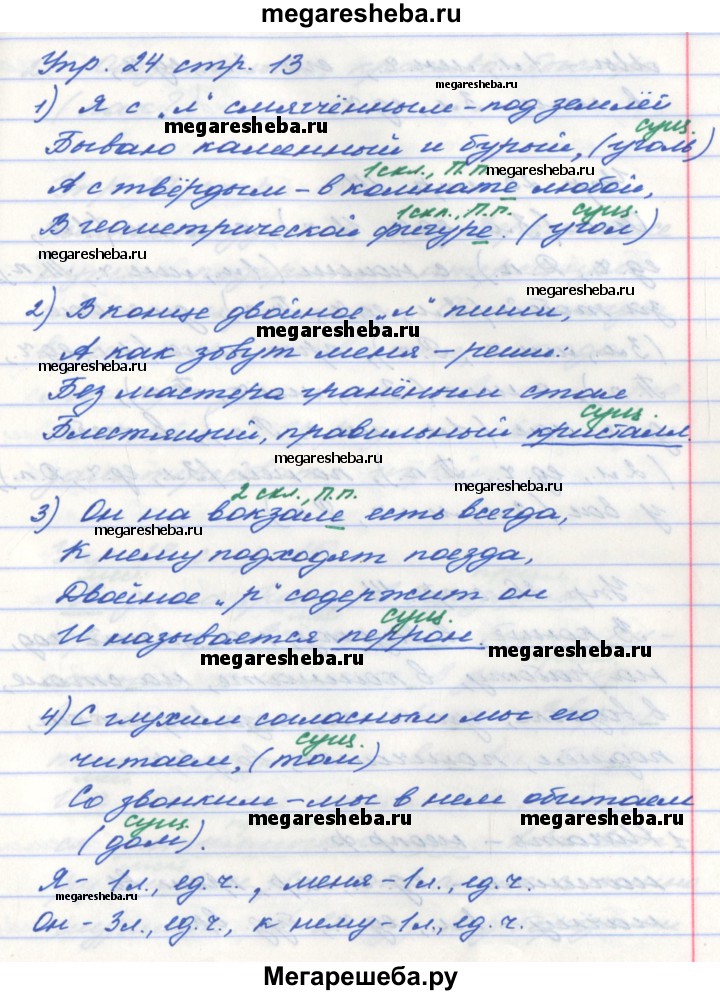 megaresheba.ru
Упр. 24 стр. 13
megaresheba.ru
1) Я с „л" смягчённым – под землёй
megaresheba.ru
сущ.
Бываю каменный и бурый, (уголь)
1 скл., П.п.
megaresheba.ru
А с твёрдым – в комнате любой,
1 скл., П.п. сущ.
В геометрической фигуре. (угол)
megaresheba.ru
megaresheba.ru
2) В конце двойное „л" пиши,
megaresheba.ru
А как зовут меня – реши:
megaresheba.ru
Без мастера гранённым стал
сущ.
Блестящий, правильный кристалл.
megaresheba.ru
megaresheba.ru
2 скл., П.п.
3) Он на вокзале есть всегда,
megaresheba.ru
К нему подходят поезда,
Двойное „р" содержит он
сущ.
И называется перрон.
megaresheba.ru
megaresheba.ru
4) С глухим согласным мы его
сущ.
читаем, (том)
Со звонким – мы в нем обитаем
сущ.
megaresheba.ru
megaresheba.ru
(дом).
Я – 1 л., ед.ч., меня – 1 л., ед.ч.
megaresheba.ru
Он – 3 л., ед.ч., к нему – 1 л., ед.ч.
Мегарешеба.ру